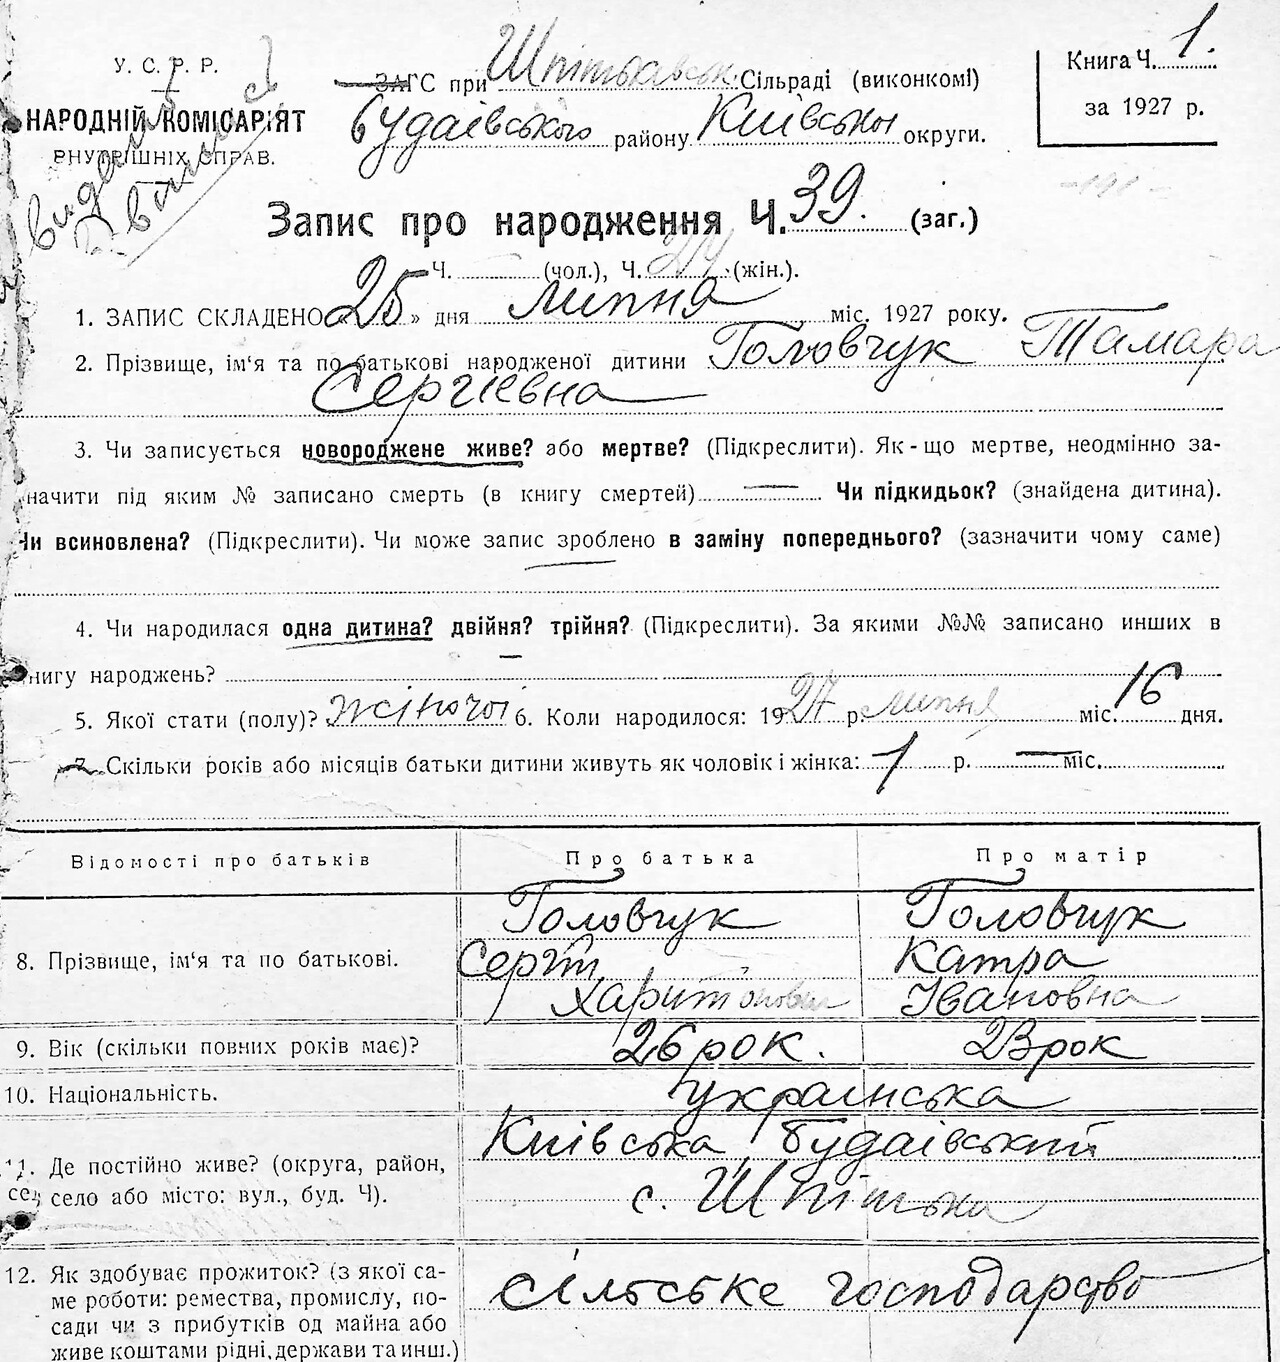 У. С. Р. Р.
НАРОДНІЙ КОМІСАРІЯТ
ВНУТРІШНІХ СПРАВ.
видан
ЗАГС при Шпітьковськ. Сільраді (виконкомі)
Будаївського району Київської округи.
Книга Ч. 1.
за 1927 р.
Запис про народження Ч. 39. (заг.)
Ч. — (чол.), Ч. 24 (жін.).
1. ЗАПИС СКЛАДЕНО « 25 » дня липня міс. 1927 року.
2. Прізвище, ім'я та по батькові народженої дитини Головчук Тамара
Сергіевна
3. Чи записується новороджене живе? або мертве? (Підкреслити). Як-що мертве, неодмінно за-
начити під яким № записано смерть (в книгу смертей) — Чи підкидьок? (знайдена дитина).
Чи всиновлена? (Підкреслити). Чи може запис зроблено в заміну попереднього? (зазначити чому саме)
4. Чи народилася одна дитина? двійня? трійня? (Підкреслити). За якими №№ записано инших в
книгу народжень? —
5. Якої стати (полу)? жіночої 6. Коли народилося: 1927 р. липня міс. 16 дня.
7. Скільки років або місяців батьки дитини живуть як чоловік і жінка: 1 р. — міс.
Відомості про батьків
Про батька
Про матір
8. Прізвище, ім'я та по батькові.
Головчук
Сергій
Харитонович
Головчук
Катра
Івановна
9. Вік (скільки повних років має)?
26 рок.
23 рок
10. Національність.
украінська
11. Де постійно живе? (округа, район,
село або місто: вул., буд. Ч).
Київська Будаівський
с. Шпітьки
12. Як здобуває прожиток? (з якої са-
ме роботи: ремества, промислу, по-
сади чи з прибутків од майна або
живе коштами рідні, держави та инш.)
сільське господарство